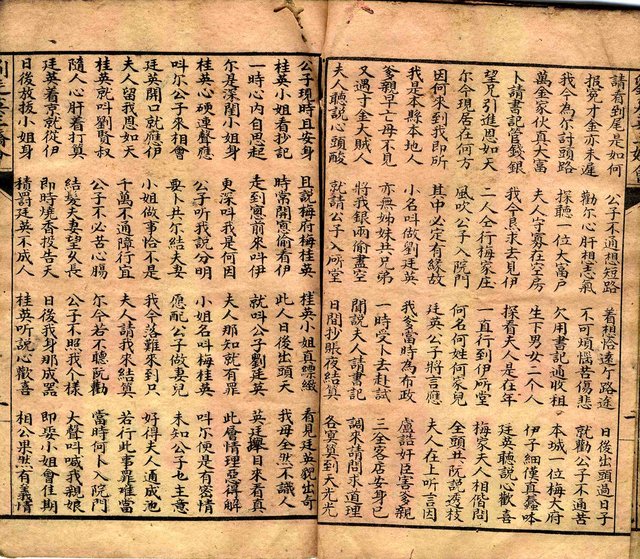 請看到尾是如何 公子不通想短路 着想恰遠个路途 日後出頭過日子
报冤才金亦未遲 勸尔心肝相志氣 不可煩惱苦傷悲 就勸公子不通苦
我今為尔討頭路 探聽一位大富户 欠用書記通收租 本城一位梅大府
萬金家伙真大富 夫人守寡在空房 生下男女二個人 伊子細漢真
卜請書記管錢銀 我今 求去見伊 探看夫人是在年 廷英聽說心歡喜
望兄引進恩如天 二人仝行梅家庄 一直行到伊所堂 梅家夫人相借問
尔今現居在何方 風吹公子入院門 何名何姓何家兒 全頭共阮說 枝
因何來到我即所 其中必定有緣故 廷英公子將言應 夫人在上听言因
我是本縣本地人 小名叫做劉廷英 我爹當時為布政 盧誥奸臣害爹親
爹親早亡母不見 亦無姊妹共兄弟 一時受卜去赴試 三全客店安身已
又遇寸金大賊人 將我銀兩偷盡空 聞說夫人請書記 調來請問求道理
夫人聽說心頭酸 就請公子入所堂 日間抄賬夜結算 各 算到天光光
公子現時且安身 且說梅府梅桂英 桂英小姐真縹緻 看見廷英貌出奇
桂英小姐看抄記 時常開窓偷看伊 此人日後出頭天 我母全然不識人
一時心內自思起 走到窓前來叫伊 就叫公子劉廷英 英廷 目來看真
尔是深閨小姐身 更深叫我是何因 夫人那知就有罪 此層情理惡得解
桂英心硬連聲應 公子听我說分明 小姐名叫梅桂英 叫尔便是有密情
叫尔公子來相會 要卜共尔結夫妻 應配公子做妻兒 未知公子也主意
廷英開口就應伊 小姐做事恰不是 我今落難來到只 好得夫人通成池
夫人留我恩如天 千萬不通障行宜 夫人請我來結算 若行此事罪難當
桂英就叫劉賢叔 公子不必苦心腸 尔今若不聽阮勸 當時何卜入院門
隨人心肝着打算 結髮夫妻望久長 公子不照我个樣 大聲叫喊我親娘
廷英着京就從伊 即時燒香投告天 日後我身那成器 即娶小姐會佳期
日後放拔小姐身 積罰廷英不成人 桂英听說心歡喜 相公果然有義情